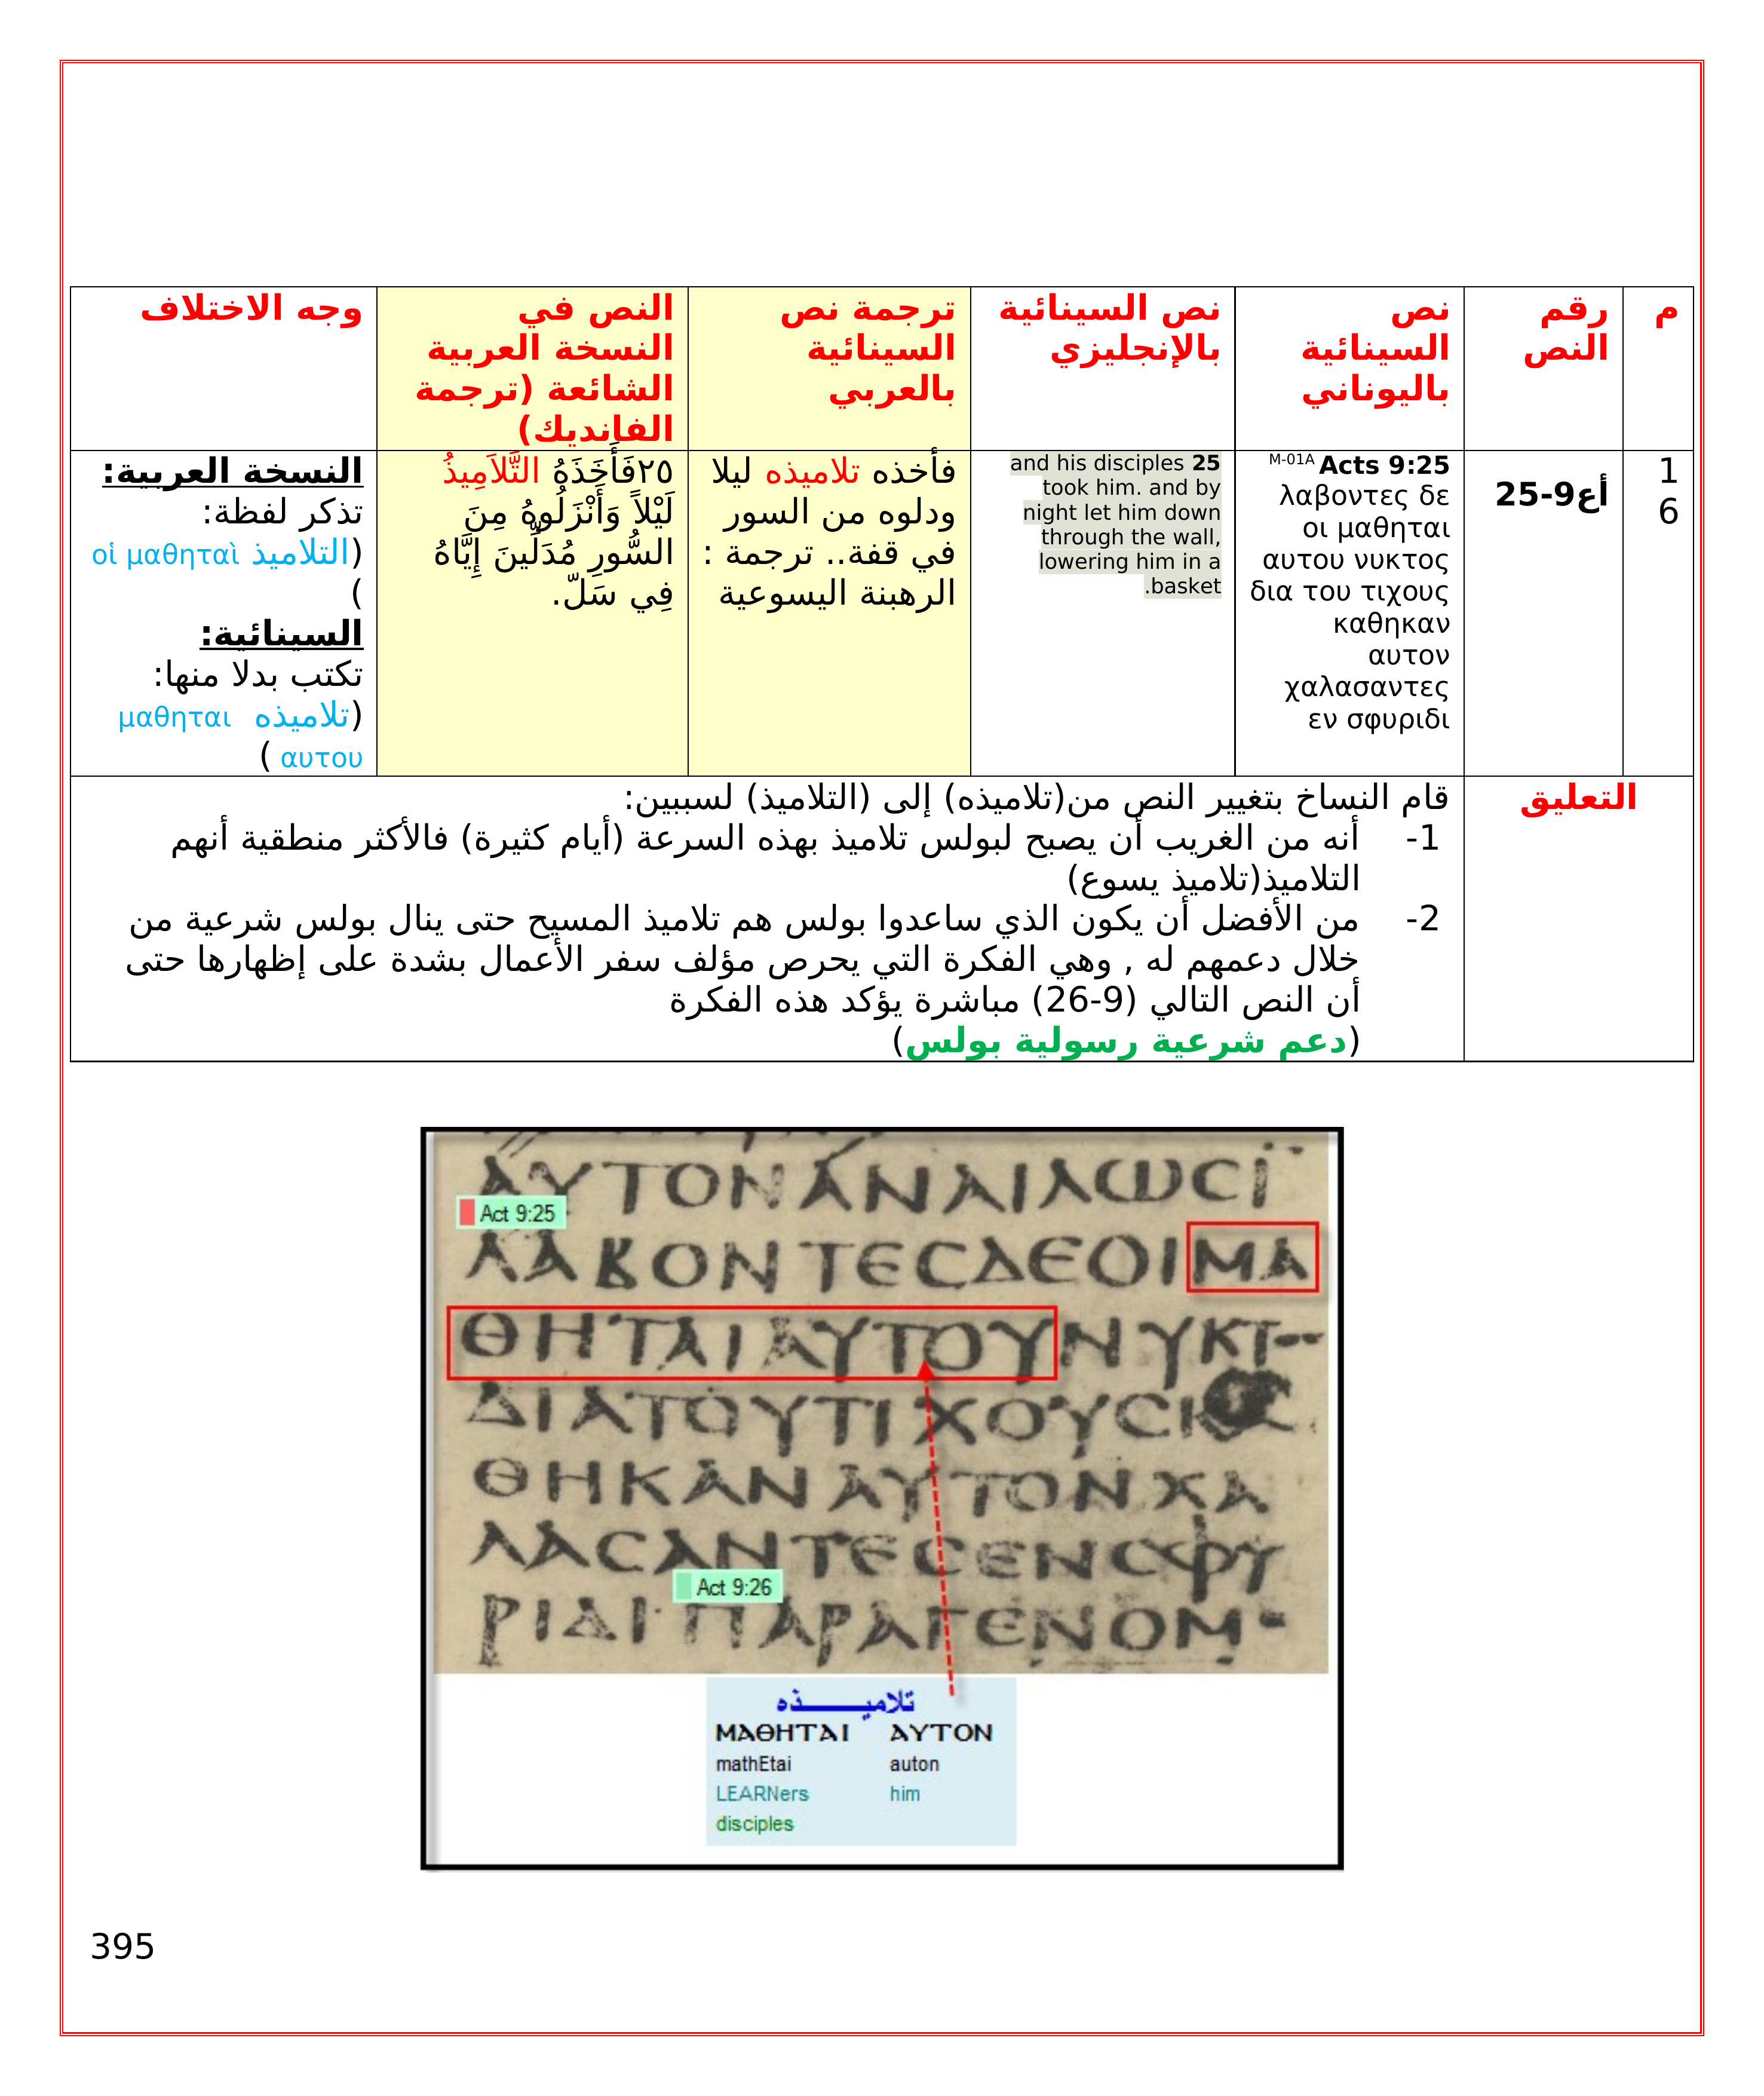 م
رقم
النص
نص
السينائية
باليوناني
نص السينائية
بالإنجليزي
ترجمة نص
السينائية
بالعربي
النص في
النسخة العربية
الشائعة (ترجمة
الفانديك)
وجه الاختلاف
1
6
أع9-25
M-01A Acts 9:25
λαβοντες δε
οι μαθηται
αυτου νυκτος
δια του τιχους
καθηκαν
αυτον
χαλασαντες
εν σφυριδι
25 and his disciples
took him. and by
night let him down
through the wall,
lowering him in a
basket.
فأخذه تلاميذه ليلا
ودلوه من السور
في قفة.. ترجمة :
الرهبنة اليسوعية
٢٥فَأَخَذَهُ التَّلاَمِيذُ
لَيْلاً وَأَنْزَلُوهُ مِنَ
السُّورِ مُدَلِّينَ إِيَّاهُ
فِي سَلّ.
النسخة العربية:
تذكر لفظة:
(التلاميذ οἱ μαθηταὶ
)
السينائية:
تكتب بدلا منها:
(تلاميذه μαθηται
αυτου )
التعليق
قام النساخ بتغيير النص من(تلاميذه) إلى (التلاميذ) لسببين:
1- أنه من الغريب أن يصبح لبولس تلاميذ بهذه السرعة (أيام كثيرة) فالأكثر منطقية أنهم
التلاميذ(تلاميذ يسوع)
2- من الأفضل أن يكون الذي ساعدوا بولس هم تلاميذ المسيح حتى ينال بولس شرعية من
خلال دعمهم له , وهي الفكرة التي يحرص مؤلف سفر الأعمال بشدة على إظهارها حتى
أن النص التالي (9-26) مباشرة يؤكد هذه الفكرة
(دعم شرعية رسولية بولس)
ΑΥΤΟΝΑΝΑΙΛΩϹΙ
Act 9:25
ΛΑΒΟΝΤΕϹΔΕΟΙΜΑ
ΘΗΤΑΙΑΥΤΟΥΝΥΚΤ
ΔΙΑΤΟΥΤΙΧΟΥϹΚΑ
ΘΗΚΑΝΑΥΤΟΝΧΑ
ΛΑϹΑΝΤΕϹΕΝϹΦΥ
Act 9:26
ΡΙΔΙ·ΠΑΡΑΓΕΝΟΜ
تلاميـــــذه
ΜΑΘΗΤΑΙ ΑΥΤΟΝ
mathEtai auton
LEARNers him
disciples
395